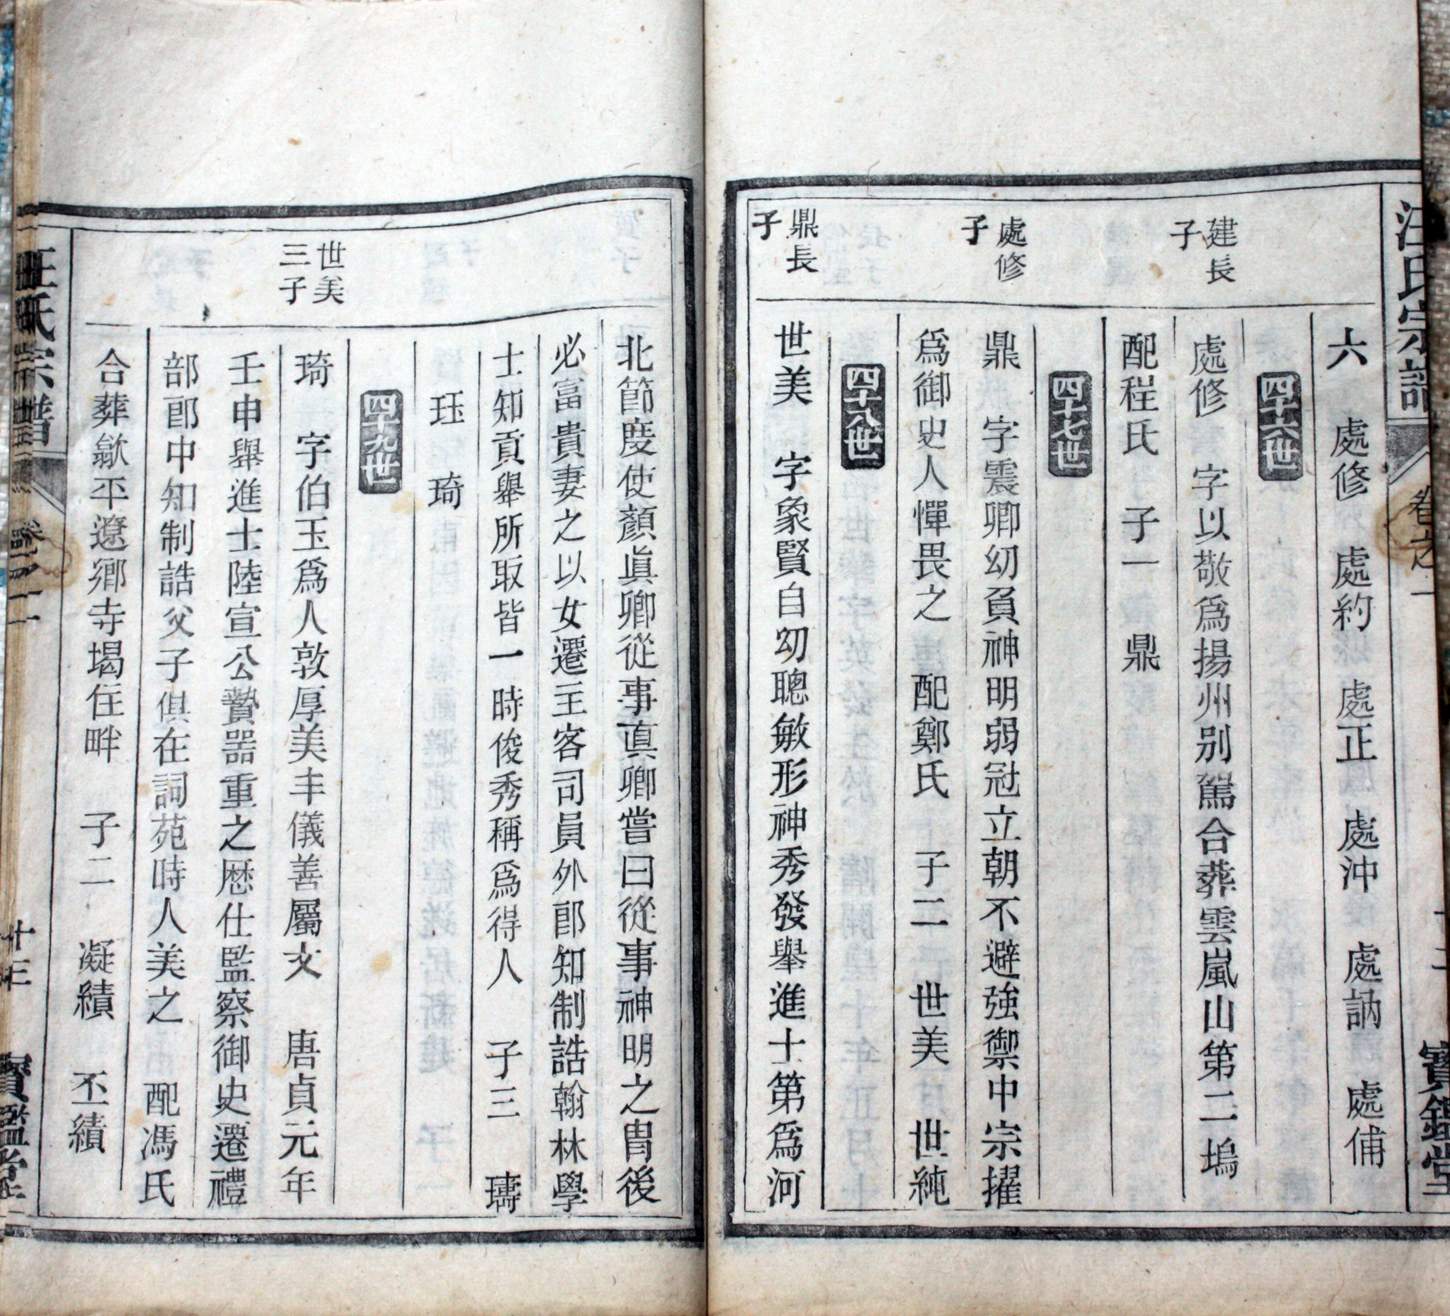 汪氏宗譜
卷之一
寶鑑堂
六 處修 處約 處正 處沖 處訥 處俌
四十六世
建長子
處修 字以敬爲揚州別駕合葬雲嵐山第二塢
配程氏 子一 鼎
四十七世
處修子
鼎 字震卿幼負神明弱冠立朝不避強禦中宗擢
爲御史人憚畏之 配鄭氏 子二 世美 世純
四十八世
鼎長子
世美 字象賢自幼聰敏形神秀發舉進士第爲河
北節度使顏眞卿從事眞卿嘗曰從事神明之胄後
必富貴妻之以女遷主客司員外郎知制誥翰林學
士知貢舉所取皆一時俊秀稱爲得人 子三 璹
珏 琦
四十九世
世美三子
琦 字伯玉爲人敦厚美丰儀善屬文 唐貞元年
壬申舉進士陸宣公贄器重之歷仕監察御史遷禮
部郎中知制誥父子俱在詞苑時人美之 配馮氏
合葬歙平遼鄉寺塌住畔 子二 凝績 丕績
汪氏宗譜
寶鑑堂